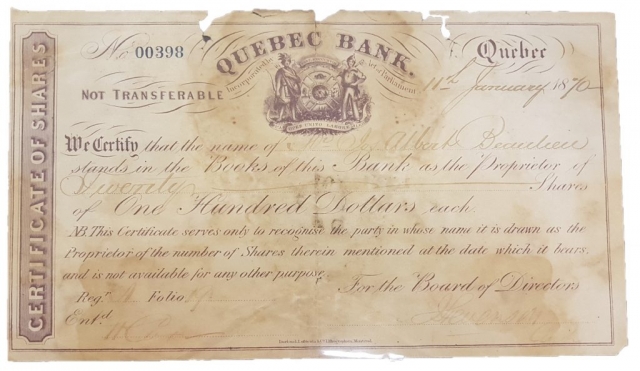 CERTIFICATE OF SHARES
No. 00398
QUEBEC BANK.
Quebec
Incorporated by Act of Parliament
11th January 1870
NOT TRANSFERABLE
We Certify that the name of Albert Beaulieu
stands in the Books of this Bank as the Proprietor of
Shares
of One Hundred Dollars each.
NB. This Certificate serves only to recognise the party in whose name it is drawn as the
Proprietor of the number of Shares therein mentioned at the date which it bears,
and is not available for any other purpose.
For the Board of Directors
Regr. Folio
Entd.